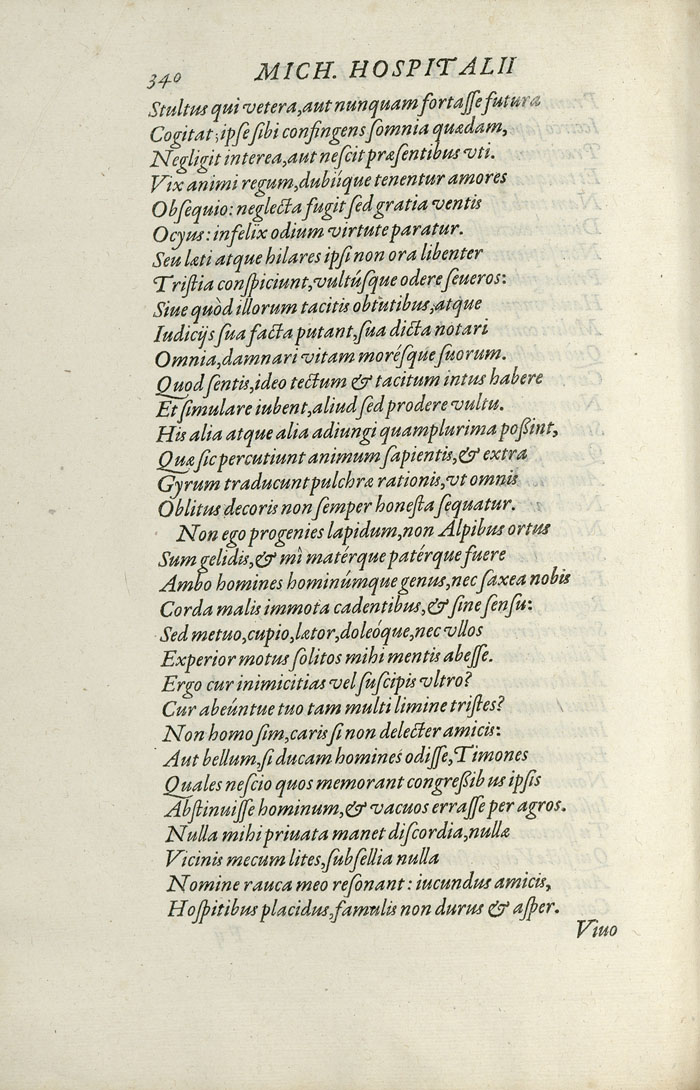 340 MICH. HOSPITALII
Stultus qui vetera, aut nunquam fortasse futura
Cogitat; ipse sibi confingens somnia quædam,
Negligit interea, aut nescit præsentibus vti.
Vix animi regum, dubiíque tenentur amores
Obsequio: neglecta fugit sed gratia ventis
Ocyus: infelix odium virtute paratur.
Seu læti atque hilares ipsi non ora libenter
Tristia conspiciunt, vultúsque odere seueros:
Siue quòd illorum tacitis obtutibus, atque
Iudicijs sua facta putant, sua dicta notari
Omnia, damnari vitam morésque suorum.
Quod sentis, ideo tectum & tacitum intus habere
Et simulare iubent, aliud sed prodere vultu.
His alia atque alia adiungi quamplurima poßint,
Quæ sic percutiunt animum sapientis, & extra
Gyrum traducunt pulchræ rationis, vt omnis
Oblitus decoris non semper honesta sequatur.
Non ego progenies lapidum, non Alpibus ortus
Sum gelidis, & mì matérque patérque fuere
Ambo homines hominúmque genus, nec saxea nobis
Corda malis immota cadentibus, & sine sensu:
Sed metuo, cupio, lætor, doleóque, nec vllos
Experior motus solitos mihi mentis abesse.
Ergo cur inimicitias vel suscipis vltro?
Cur abeúntue tuo tam multi limine tristes?
Non homo sim, caris si non delecter amicis:
Aut bellum, si ducam homines odisse, Timones
Quales nescio quos memorant congreßibus ipsis
Abstinuisse hominum, & vacuos errasse per agros.
Nulla mihi priuata manet discordia, nullæ
Vicinis mecum lites, subsellia nulla
Nomine rauca meo resonant: iucundus amicis,
Hospitibus placidus, famulis non durus & asper.
Viuo